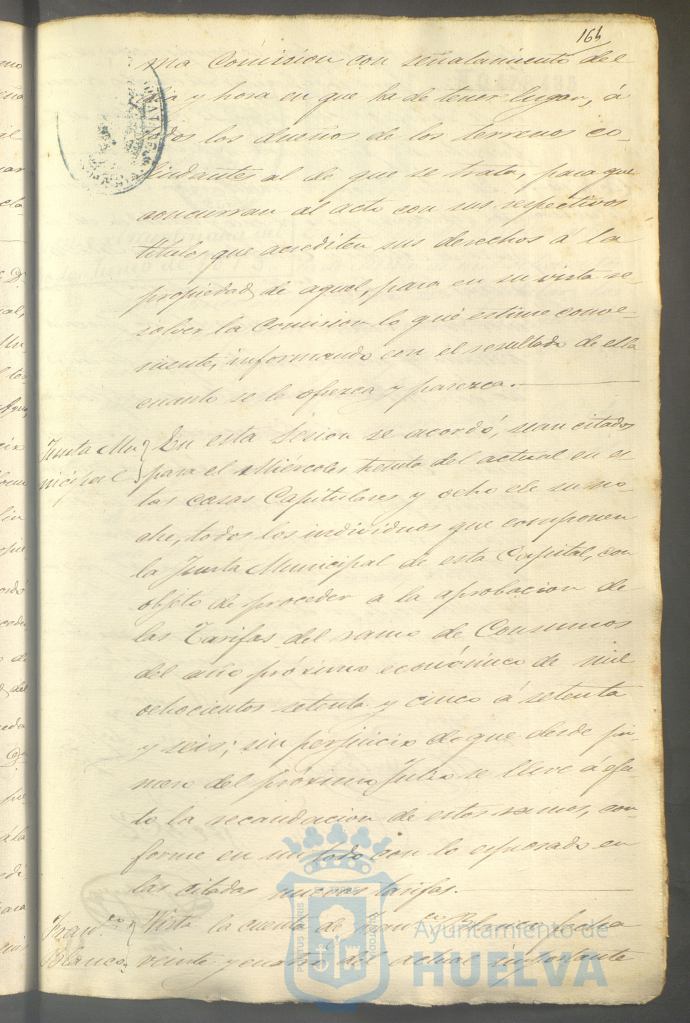 164
ma Comision con señalamiento del
dia y hora en que ha de tener lugar, á
todos los dueños de los terrenos co-
lindantes al de que se trata, para que
concurran al acto con sus respectivos
titulos que acrediten sus derechos á la
propiedad de aquel, para en su vista re-
solver la Comision lo que estime conve-
niente, informando con el resultado de ella
cuanto se le ofrezca y parezca.
Junta Mu
nicipal
En esta Sesion se acordó, sean citados
para el Miércoles treinta del actual en es
tas casas Capitulares y ocho de su no-
che, todos los individuos que componen
la Junta Municipal de esta Capital, con
objeto de proceder a la aprobacion de
las Tarifas del ramo de Consumos
del año próximo económico de mil
ochocientos setenta y cinco á setenta
y seis; sin perjuicio de que desde pri-
mero del próximo Julio se lleve á efec
to la recaudacion de estos ramos, con-
forme en un todo con lo espresado en
las citadas nuevas tarifas.
Fran.co
Blanco
Vista la cuenta de Fran.co Blanco fecha
veinte y cuatro del actual importante
Ayuntamiento de
HUELVA